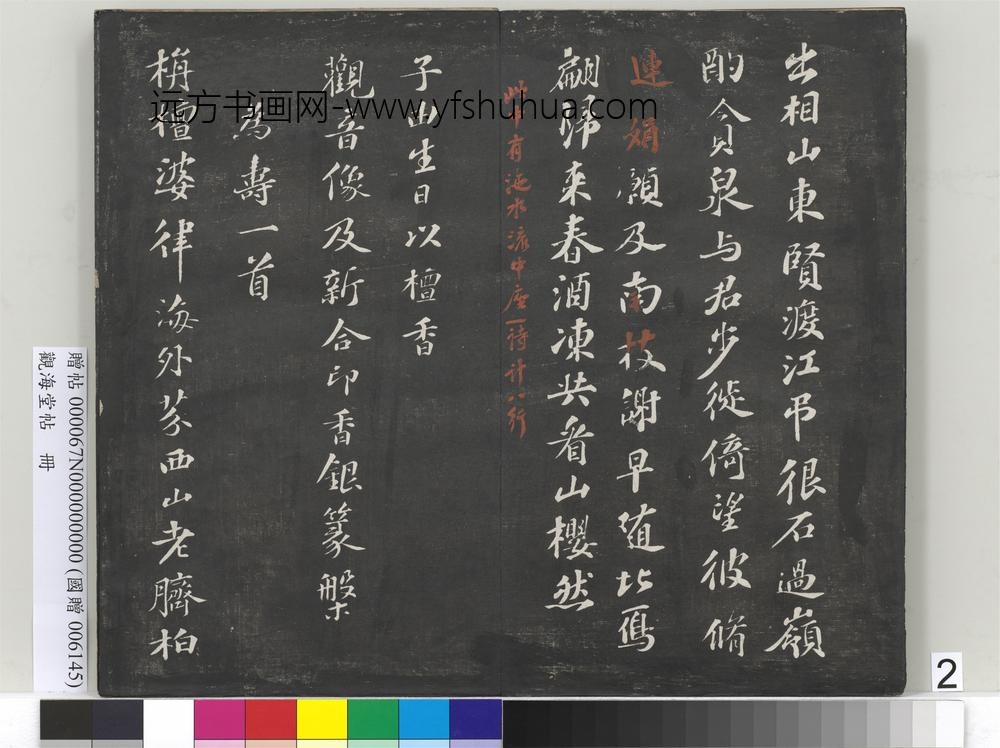 出相山東賢渡江弔很石過嶺
酌貪泉与君步徙倚望彼脩
連娟願及南枝謝早随北鴈
翩歸来春酒凍共看山櫻然
此下有海水滚中座一詩计八行
子由生日以檀香
觀音像及新合印香銀篆槃
為壽一首
栴檀婆律海外芬西山老臍柏
远方书画网-www.yfshuhua.com
贈帖 000067N000000000 (國贈 006145)
觀海堂帖 冊
2